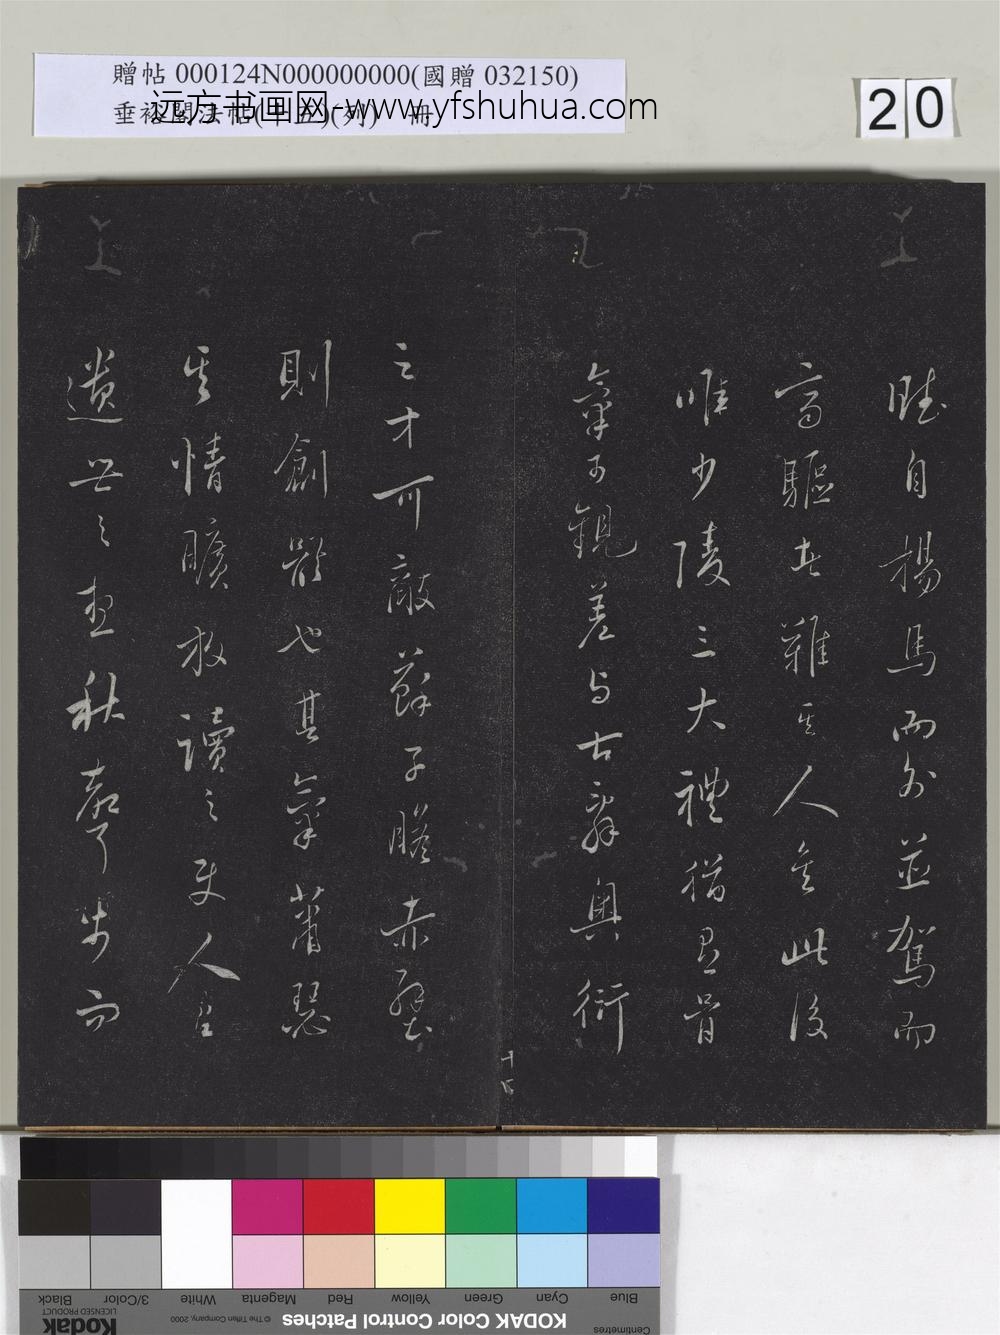 贈帖 000124N000000000(國贈 032150)
垂裕閣法帖(十五)(列)一冊
远方书画网-www.yfshuhua.com
20
睦自揚馬而外並駕而
高驅者難其人矣此後
唯少陵三大禮猶具骨
氣可觀差与古辭奧衍
之才可敵蘇子瞻赤壁
則創體也其氣蕭瑟
其情曠放讀之使人有
遺世之思秋聲步而
KODAK Color Control Patches
© The Tiffen Company, 2000
Kodak
LICENSED PRODUCT
Centimetres
Blue
Cyan
Green
Yellow
Red
Magenta
White
3/Color
Black